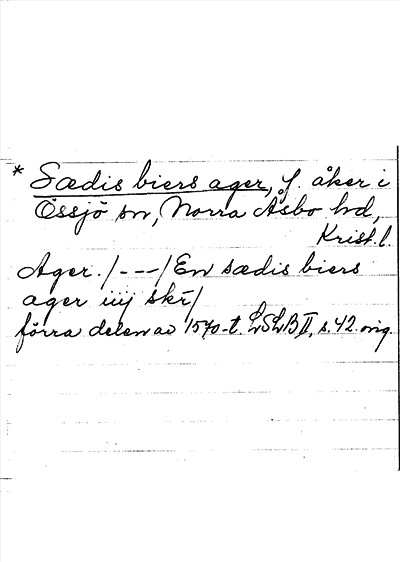 * Sædis biers ager, f. åker i
Össjö sn, Norra Åsbo hd,
Krist. l.
Ager. /---/ En sædis biers
ager iiij skr̄/
förra delen av 1570-t. LSLB II, s. 42. orig.